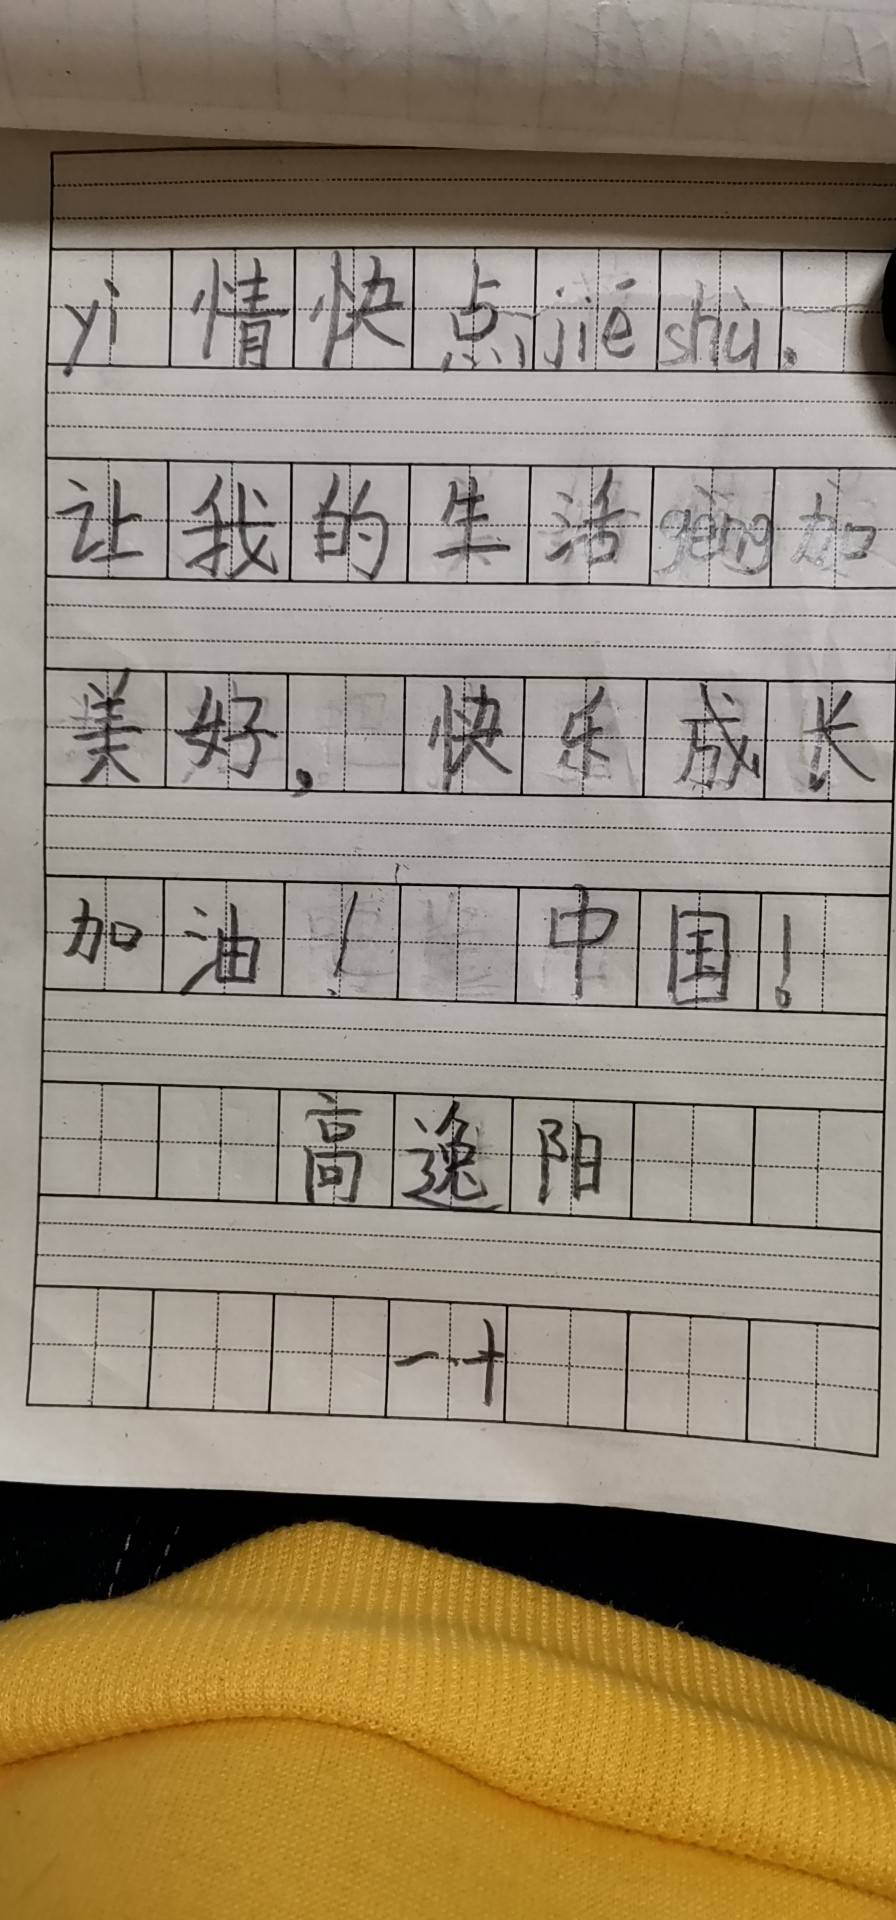 yì情快点jiéshù.
让我的生活gèng加
美好，快乐成长
加油！中国！
高逸阳